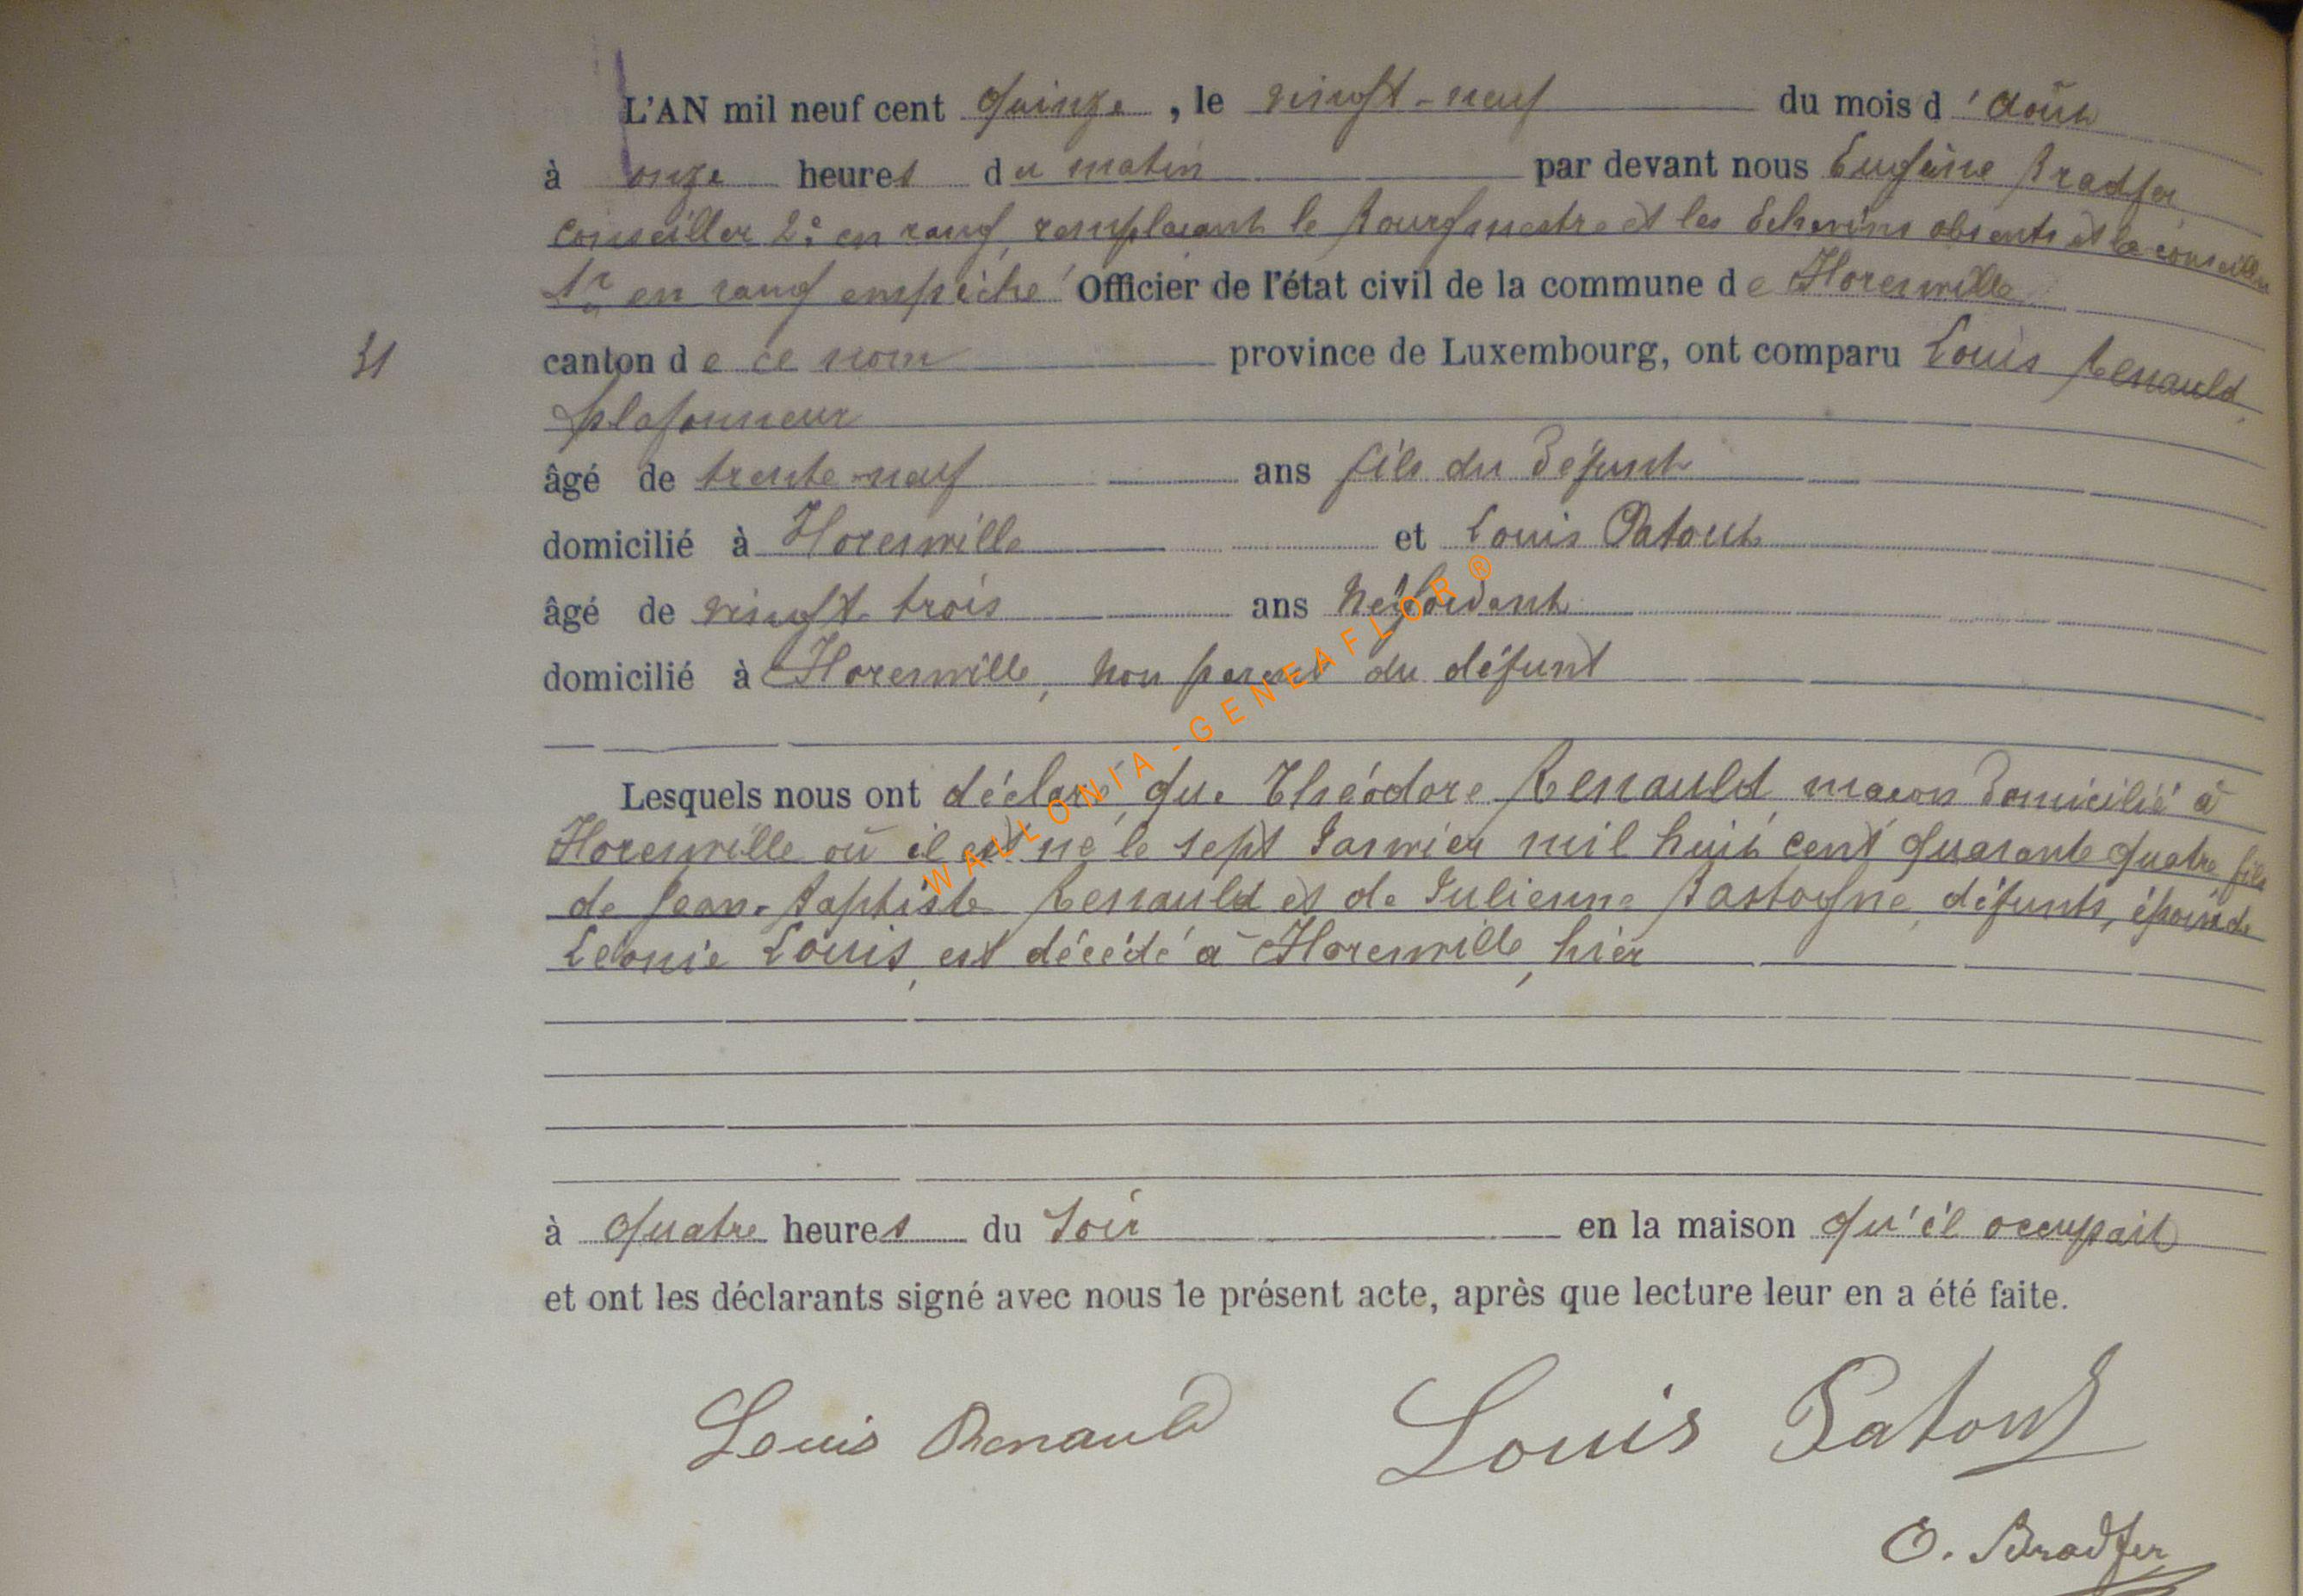 L'AN mil neuf cent quinze, le vingt-neuf du mois d'août
à onze heures du matin par devant nous Eugène Bradfer
conseiller 2e en rang, remplaçant le Bourgmestre et les Echevins absents et le conseiller
1r en rang empêché Officier de l'état civil de la commune de Florenville
31
canton de ce nom province de Luxembourg, ont comparu Louis Renauld
plafonneur
âgé de trente-neuf ans fils du défunt
domicilié à Florenville et Louis Patout
âgé de vingt-trois ans Négociant
domicilié à Florenville, non parent du défunt
Lesquels nous ont déclaré que Théodore Renauld maçon domicilié à
Florenville où il est né le sept Janvier mil huit cent quarante quatre, fils
de Jean-Baptiste Renauld et de Julienne Bastogne, défunts, époux de
Léonie Louis, est décédé à Florenville, hier
à quatre heures du soir en la maison qu'il occupait
et ont les déclarants signé avec nous le présent acte, après que lecture leur en a été faite.
Louis Renauld Louis Patout
E. Bradfer
WALLONIA-GENEAFLOR ®